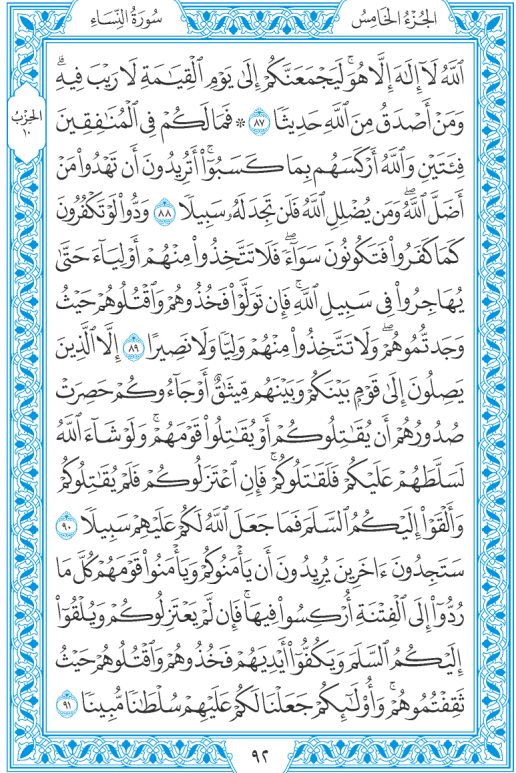 الجُزْءُ الخَامِسُ
سُورَةُ النِّسَاءِ
ٱللَّهُ لَآ إِلَٰهَ إِلَّا هُوَۚ لَيَجۡمَعَنَّكُمۡ إِلَىٰ يَوۡمِ ٱلۡقِيَٰمَةِ لَا رَيۡبَ فِيهِۗ
وَمَنۡ أَصۡدَقُ مِنَ ٱللَّهِ حَدِيثٗا ٨٧ ۞ فَمَا لَكُمۡ فِي ٱلۡمُنَٰفِقِينَ
فِئَتَيۡنِ وَٱللَّهُ أَرۡكَسَهُم بِمَا كَسَبُوٓاْۚ أَتُرِيدُونَ أَن تَهۡدُواْ مَنۡ
أَضَلَّ ٱللَّهُۖ وَمَن يُضۡلِلِ ٱللَّهُ فَلَن تَجِدَ لَهُۥ سَبِيلٗا ٨٨ وَدُّواْ لَوۡ تَكۡفُرُونَ
كَمَا كَفَرُواْ فَتَكُونُونَ سَوَآءٗۖ فَلَا تَتَّخِذُواْ مِنۡهُمۡ أَوۡلِيَآءَ حَتَّىٰ
يُهَاجِرُواْ فِي سَبِيلِ ٱللَّهِۚ فَإِن تَوَلَّوۡاْ فَخُذُوهُمۡ وَٱقۡتُلُوهُمۡ حَيۡثُ
وَجَدتُّمُوهُمۡۖ وَلَا تَتَّخِذُواْ مِنۡهُمۡ وَلِيّٗا وَلَا نَصِيرًا ٨٩ إِلَّا ٱلَّذِينَ
يَصِلُونَ إِلَىٰ قَوۡمِۭ بَيۡنَكُمۡ وَبَيۡنَهُم مِّيثَٰقٌ أَوۡ جَآءُوكُمۡ حَصِرَتۡ
صُدُورُهُمۡ أَن يُقَٰتِلُوكُمۡ أَوۡ يُقَٰتِلُواْ قَوۡمَهُمۡۚ وَلَوۡ شَآءَ ٱللَّهُ
لَسَلَّطَهُمۡ عَلَيۡكُمۡ فَلَقَٰتَلُوكُمۡۚ فَإِنِ ٱعۡتَزَلُوكُمۡ فَلَمۡ يُقَٰتِلُوكُمۡ
وَأَلۡقَوۡاْ إِلَيۡكُمُ ٱلسَّلَمَ فَمَا جَعَلَ ٱللَّهُ لَكُمۡ عَلَيۡهِمۡ سَبِيلٗا ٩٠
سَتَجِدُونَ ءَاخَرِينَ يُرِيدُونَ أَن يَأۡمَنُوكُمۡ وَيَأۡمَنُواْ قَوۡمَهُمۡ كُلَّ مَا
رُدُّوٓاْ إِلَى ٱلۡفِتۡنَةِ أُرۡكِسُواْ فِيهَاۚ فَإِن لَّمۡ يَعۡتَزِلُوكُمۡ وَيُلۡقُوٓاْ
إِلَيۡكُمُ ٱلسَّلَمَ وَيَكُفُّوٓاْ أَيۡدِيَهُمۡ فَخُذُوهُمۡ وَٱقۡتُلُوهُمۡ حَيۡثُ
ثَقِفۡتُمُوهُمۡۚ وَأُوْلَٰٓئِكُمۡ جَعَلۡنَا لَكُمۡ عَلَيۡهِمۡ سُلۡطَٰنٗا مُّبِينٗا ٩١
الحِزْبُ
١٠
٩٢